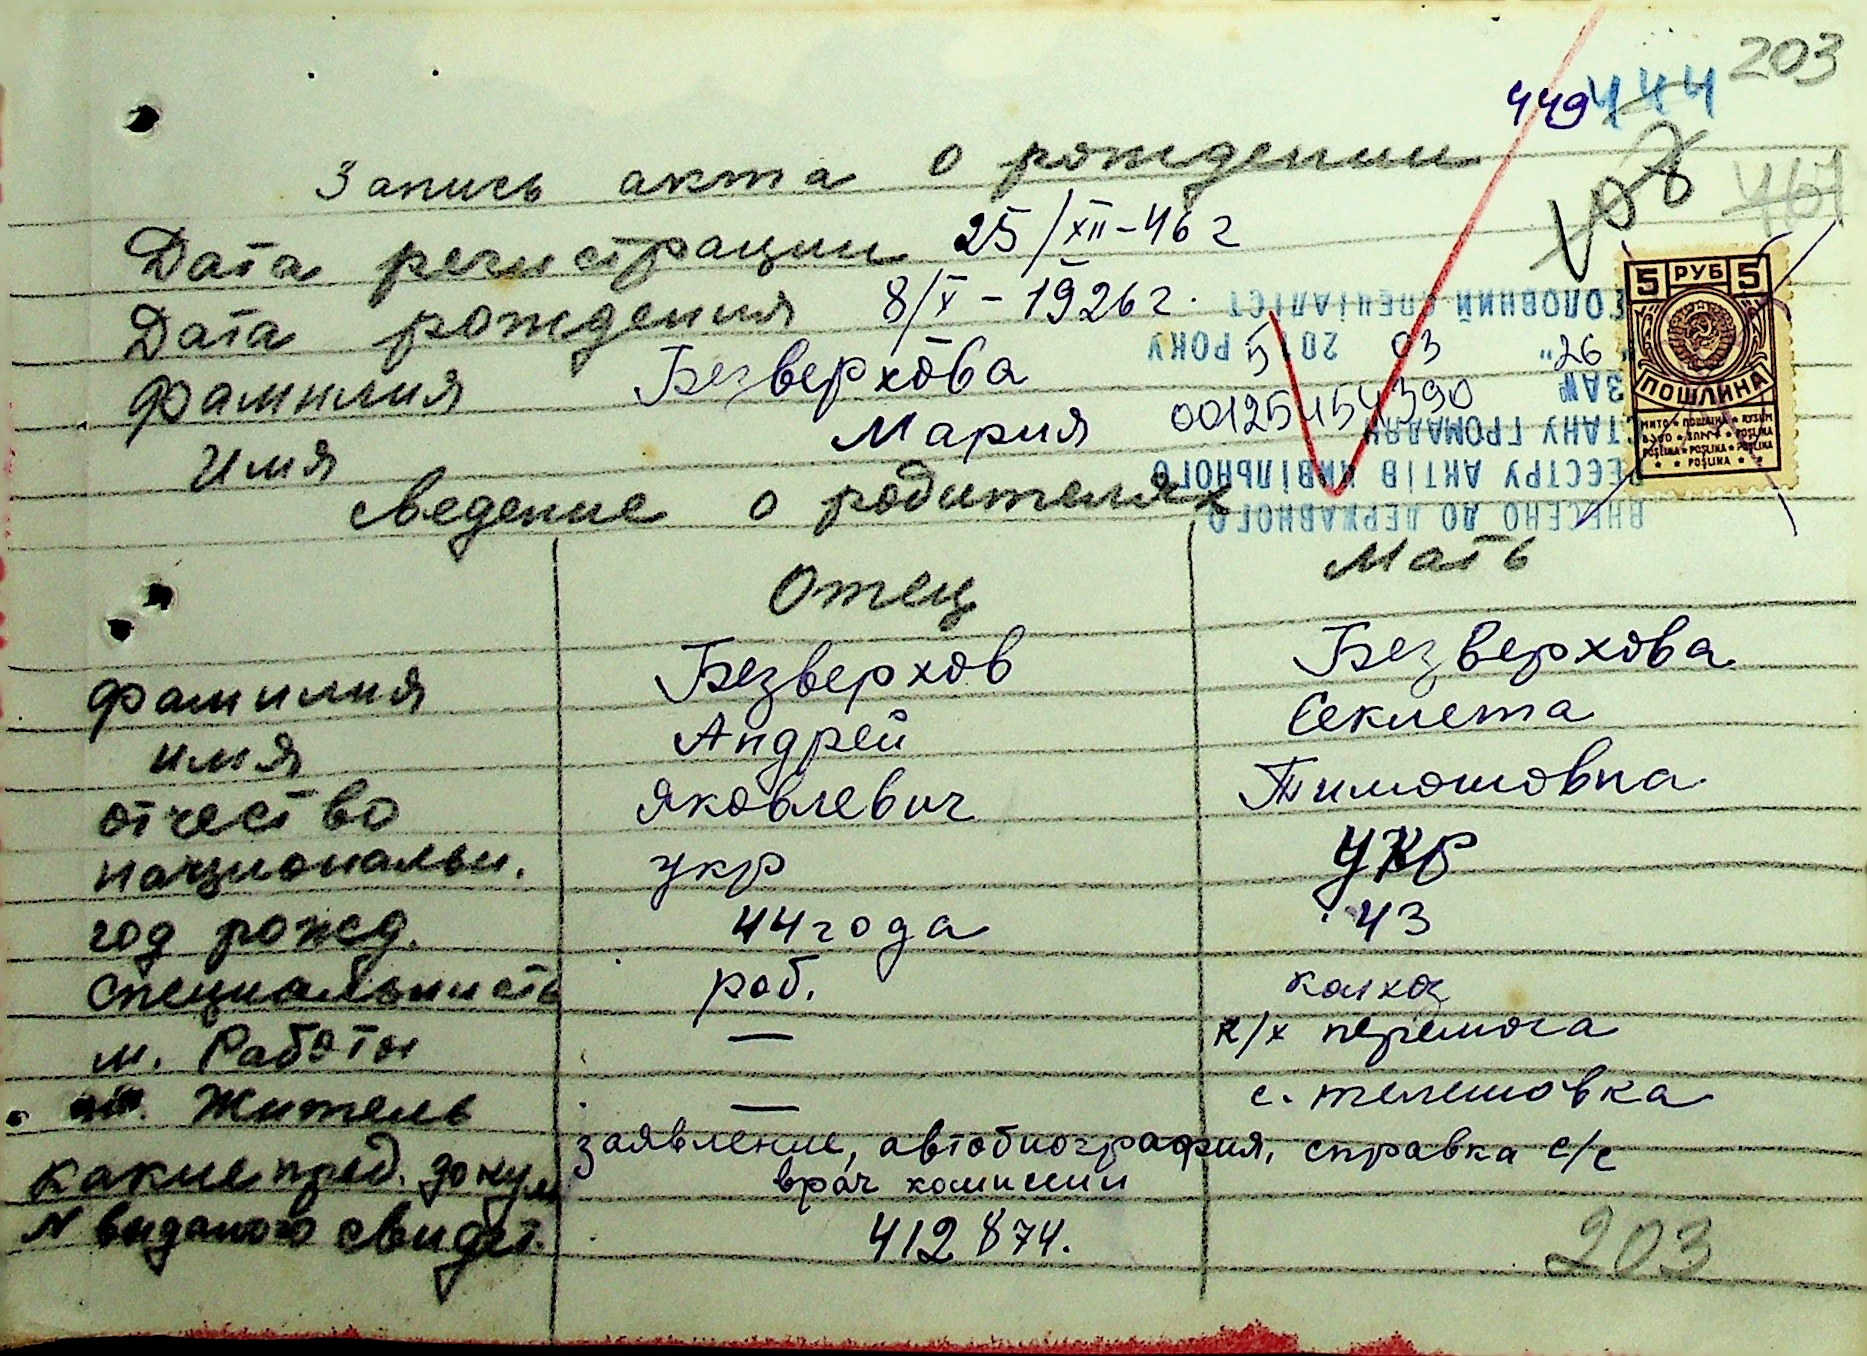 203
449 444
108 467
Запись акта о рождении
Дата регистрации 25/XII-46 г
Дата рождения 8/X - 1926 г.
фамилия Безверхова
Имя Мария
сведение о родителях
5 РУБ 5
ПОШЛИНА
ВНЕСЕНО ДО ДЕРЖАВНОГО
РЕЄСТРУ АКТІВ ЦИВІЛЬНОГО
СТАНУ ГРОМАДЯН
ЗА № 00125454390
"26" 03 2015 РОКУ
ГОЛОВНИЙ СПЕЦІАЛІСТ
Отец Мать
фамилия Безверхов Безверхова
имя Андрей Секлета
отчество Яковлевич Тимошовна
национальн. укр укр
год рожд. 44 года 43
специальность раб. колхоз
м. Работы — к/х перемога
Житель — с. телешовка
какие пред. докум заявление, автобиография, справка с/с
врач комиссии
N выданого свидет. 412874.
203